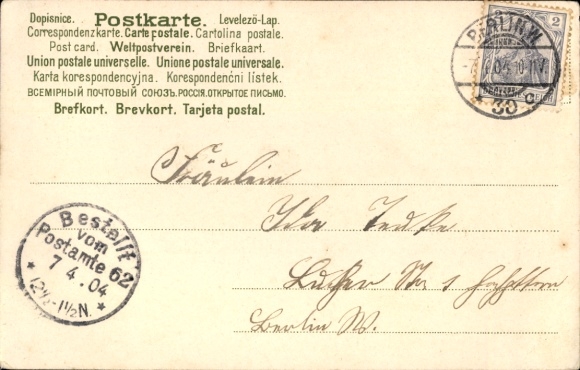 Dopisnice. Postkarte. Levelező-Lap.
Correspondenzkarte. Carte postale. Cartolina postale.
Post card. Weltpostverein. Briefkaart.
Union postale universelle. Unione postale universale.
Karta korespondencyjna. Korespondenčni lístek.
ВСЕМІРНЫЙ ПОЧТОВЫЙ СОЮЗЪ. РОССІЯ. ОТКРЫТОЕ ПИСЬМО.
Brefkort. Brevkort. Tarjeta postal.
2
BERLIN.W.
04.10-11V.
* 30 c
Fräulein
Ida
Luther Str
Berlin W.
Bestellt
vom
Postamte 62
7 4.04
* 12½-1½N. *